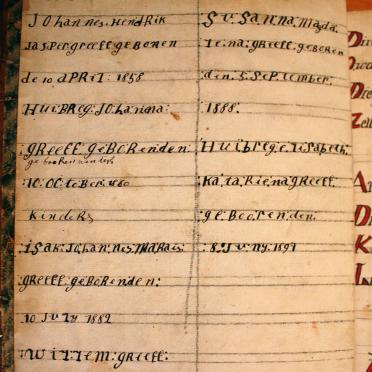 JOHANNES HENDRIK
JASPER GREEFF GEBOREN
de 10 APRIL: 1858
HUIBREG: JOHANNA:
GREEFF GEBORENDEN:
10: OCTOBER: 1860
Kinders
ISAK: JOHANNES: MARAIS:
GREEFF: GEBORENDEN:
10 JULY 1882
:WILLEM: GREEFF:
SUSANNA, MAGDA.
LENA: GREEFF. GEBOREN
den: 5 SEPTEMBER.
1888.
HUIBREG. ELISABETH.
KATARIENA GREEFF.
GEBOORENDEN.
:8: JUNY. 1891